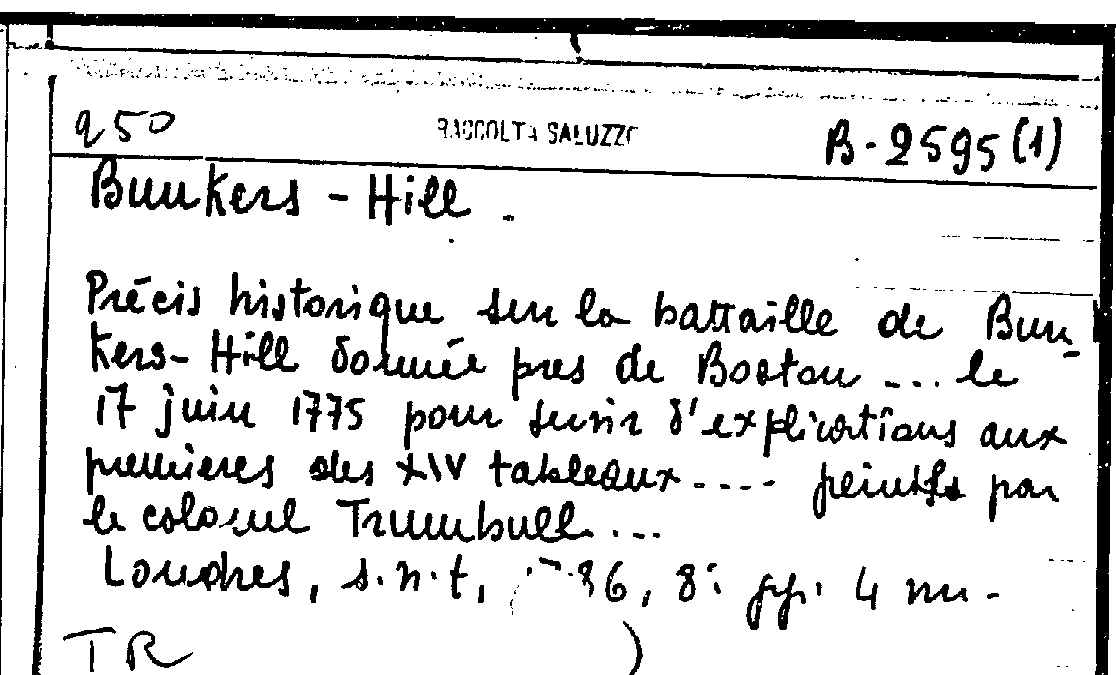 950 RACCOLTA SALUZZO B-2595(1)
Bunkers-Hill.
Précis historique sur la battaille de Bun-
kers-Hill donnée pres de Boston ... le
17 juin 1775 pour servir d'explications aux
premieres des XIV tableaux .... peints par
le colonel Trumbull ...
Londres, s.n.t, 86, 8° pp. 4 nn.
TR )